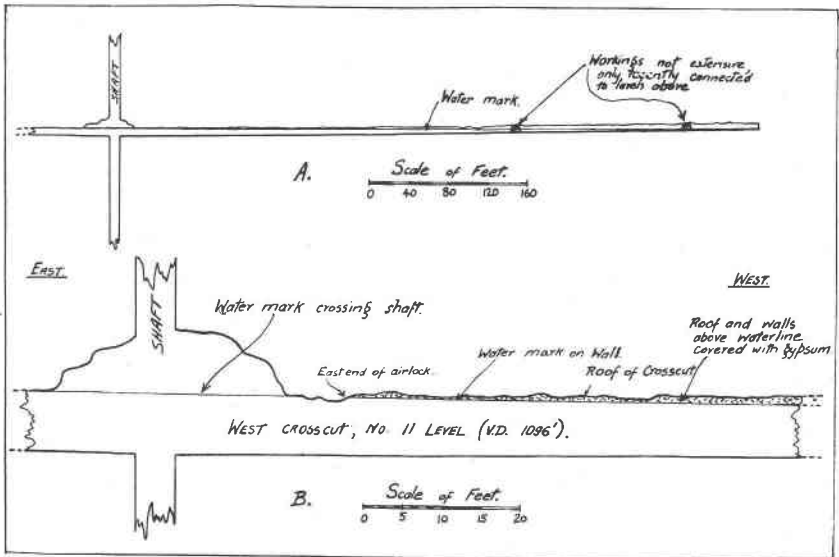 SHAFT
Water mark.
Workings not extensive
only recently connected
to level above
A.
Scale of Feet.
0 40 80 120 160
EAST.
WEST.
SHAFT
Water mark crossing shaft.
East end of airlock.
Water mark on Wall.
Roof of Crosscut
Roof and walls
above waterline
covered with gypsum
WEST CROSSCUT, NO. 11 LEVEL (V.D. 1096').
B.
Scale of Feet.
0 5 10 15 20